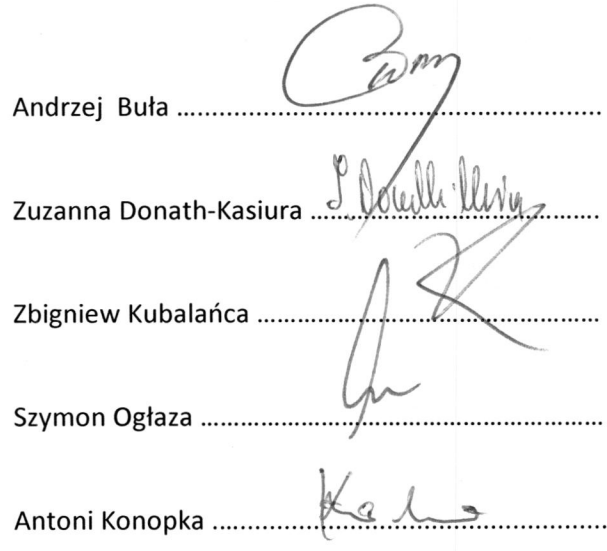 Andrzej Buła ................................................................
Zuzanna Donath-Kasiura ...........................................
Zbigniew Kubalańca ...................................................
Szymon Ogłaza ............................................................
Antoni Konopka ..........................................................